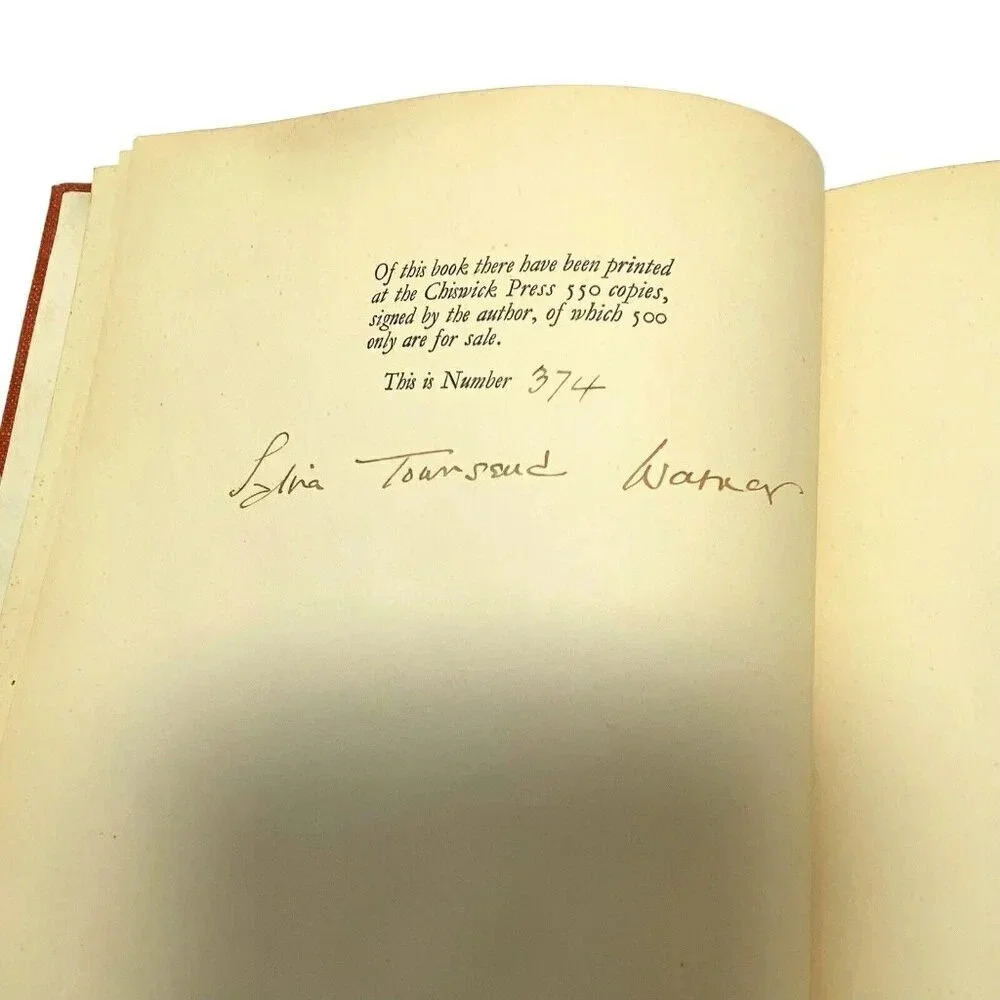 Of this book there have been printed
at the Chiswick Press 550 copies,
signed by the author, of which 500
only are for sale.
This is Number 374
Sylvia Townsend Warner